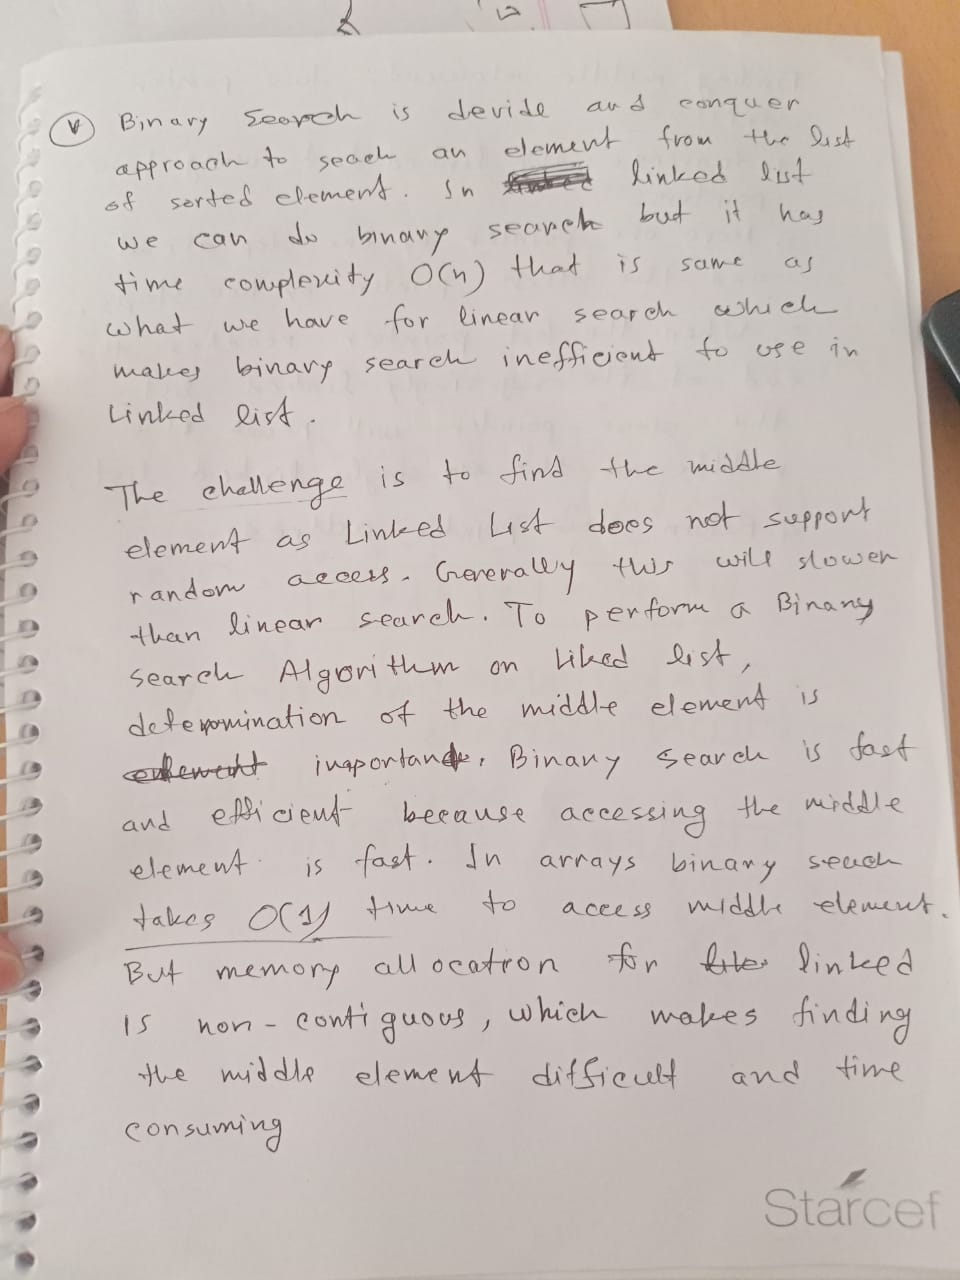 V Binary Search is devide and conquer
approach to seach an element from the list
of sorted element. In linked list
we can do binary search but it has
time complexity O(n) that is same as
what we have for linear search which
makes binary search inefficient to use in
Linked list.
The challenge is to find the middle
element as Linked List does not support
random access. Generally this will slower
than linear search. To perform a Binary
Search Algorithm on Liked list,
determination of the middle element is
important. Binary Search is fast
and efficient because accessing the middle
element is fast. In arrays binary seach
takes O(1) time to access middle element.
But memory allocation for linked
is non-contiguous, which makes finding
the middle element difficult and time
consuming
Starcef